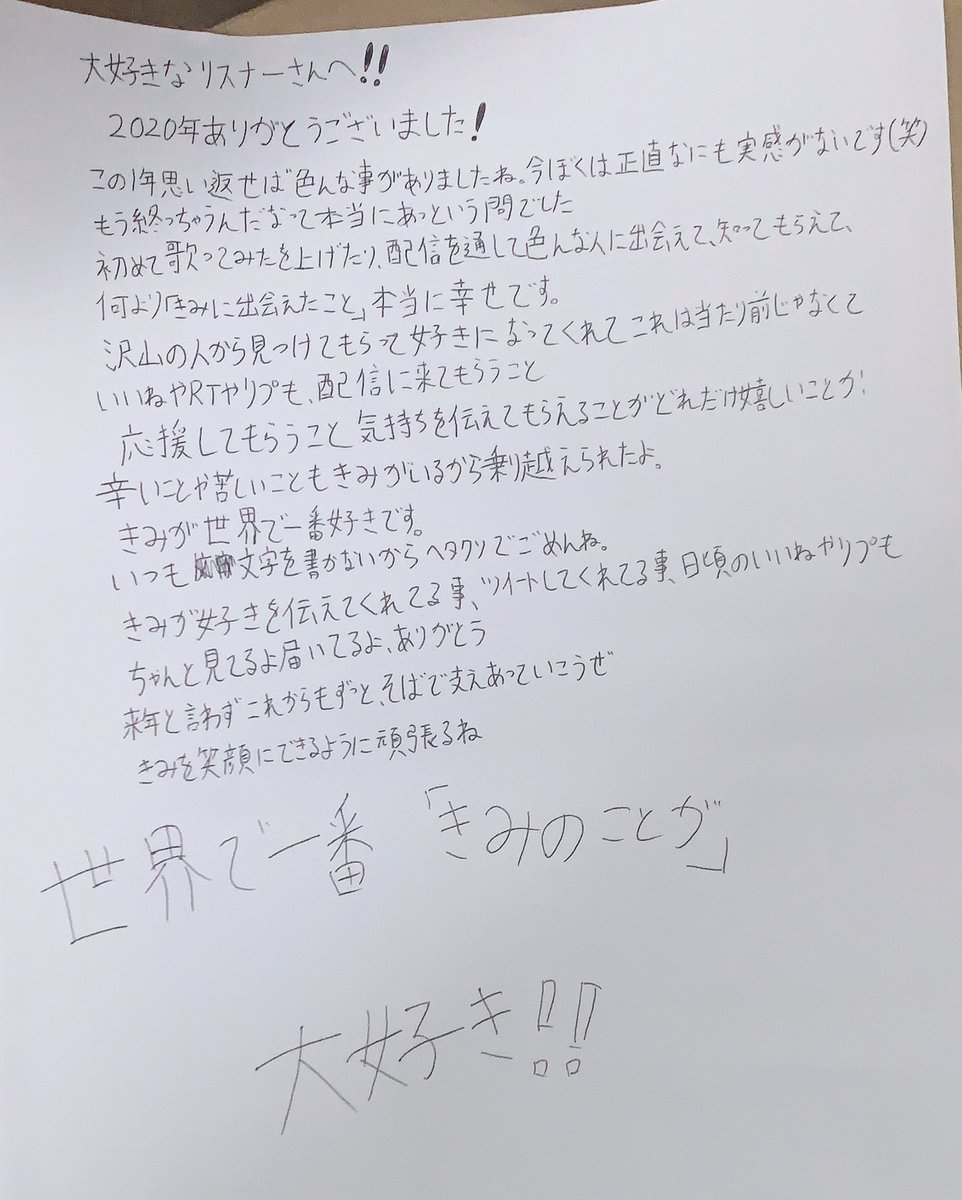 大好きなリスナーさんへ!!
2020年ありがとうございました!
この1年思い返せば色んな事がありましたね。今ぼくは正直なにも実感がないです(笑)
もう終っちゃうんだなって本当にあっという間でした
初めて歌ってみたを上げたり、配信を通して色んな人に出会えて、知ってもらえて、
何より「きみに出会えたこと」本当に幸せです。
沢山の人から見つけてもらって好きになってくれてこれは当たり前じゃなくて
いいねやRTやリプも、配信に来てもらうこと
応援してもらうこと気持ちを伝えてもらえることがどれだけ嬉しいことか!
辛いことや苦しいこともきみがいるから乗り越えられたよ。
きみが世界で一番好きです。
いつも文字を書かないからヘタクソでごめんね。
きみが好きを伝えてくれてる事、ツイートしてくれてる事、日頃のいいねやリプも
ちゃんと見てるよ届いてるよ、ありがとう
来年と言わずこれからもずっと、そばで支えあっていこうぜ
きみを笑顔にできるように頑張るね
世界で一番「きみのことが」
大好き!!